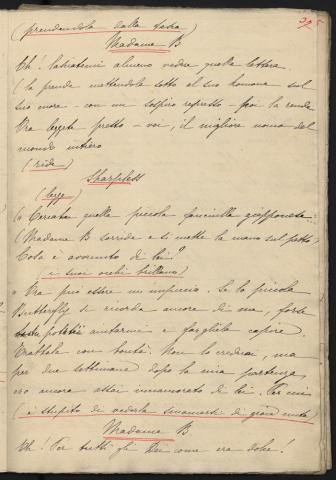 (prendendola dalla tasca)
Madama B
Oh! lasciatemi almeno vedere quella lettera.
(la prende mettendola sotto il suo kimono sul
suo cuore - con un sospiro represso - poi la rende
Ora leggete presto - voi, il migliore uomo del
mondo intiero
(ride)
Sharpless
(legge)
"Cercate quella piccola fanciulla giapponese.
(Madama B sorride e si mette la mano sul petto)
Cosa è avvenuto di lei?
(i suoi occhi brillano)
" Ora può essere un impiccio. Se la piccola
Butterfly si ricorda ancora di me, forse
potete aiutarmi a farglielo capire.
Trattela con bontà. Non lo crederai, ma
per due settimane dopo la mia partenza,
ero ancora assai innamorato di lei.
(è stupito di vederla
Madama B
Oh! Per tutti gli Dei come era dolce.